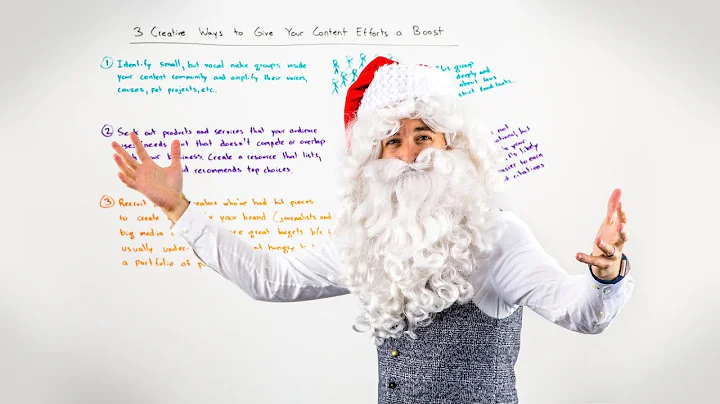 3 Creative Ways to Give Your Content Efforts a Boost
1 Identify small, but vocal niche groups inside
your content community and amplify their voices,
causes, pet projects, etc.
This group
deeply and
about laws
strict food
2 Seek out products and services that your audience
needs but that doesn't compete or overlap
your business. Create a resource that lists,
and recommends top choices.
not
but
your
it's likely
easier to earn
citations
3 Recruit who've had hit pieces
to create your brand (journalists and
big media great targets b/c
usually hungry
a portfolio of